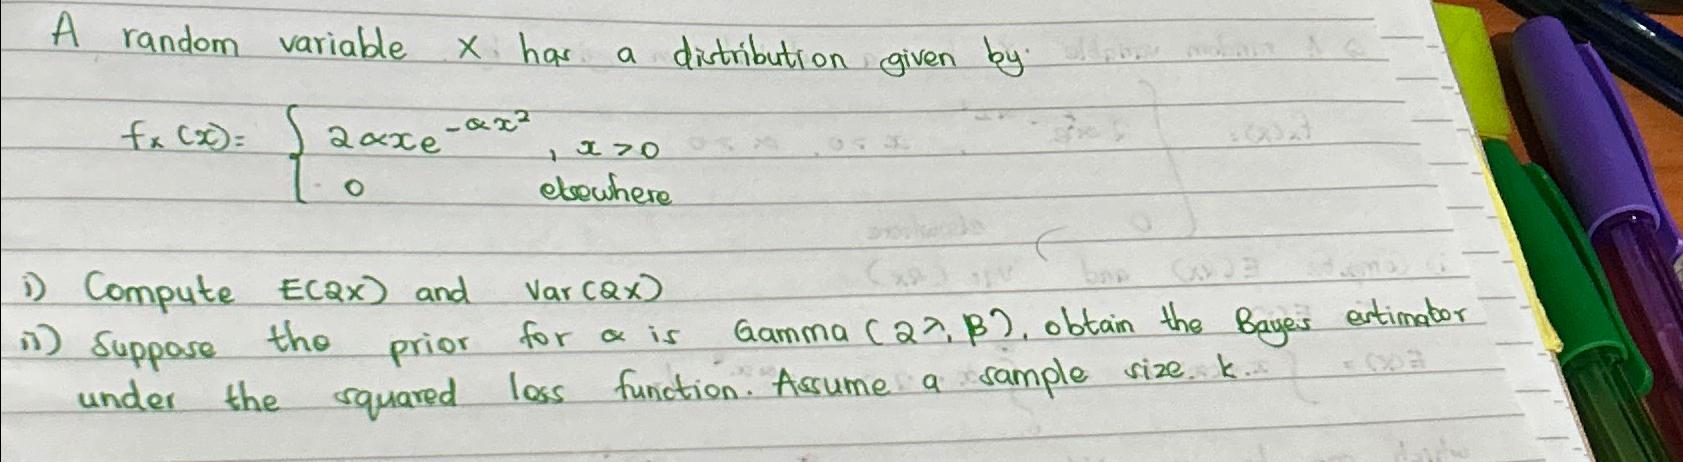 A random variable X has a distribution given by:
fx(x) = { 2αxe^{-αx²}, x>0
0 elsewhere
i) Compute E(2X) and Var(2X)
ii) Suppose the prior for α is Gamma (2λ, β), obtain the Bayes estimator
under the squared loss function. Assume a sample size k.